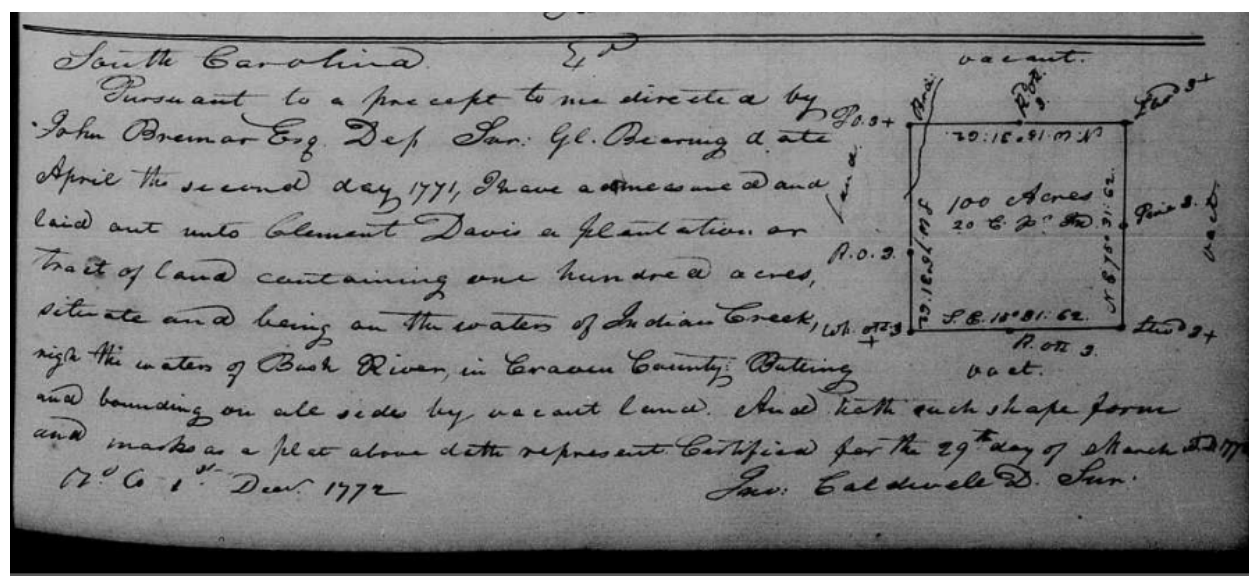 South Carolina
Pursuant to a precept to me directed by
John Bremar Esq. Dep Sur: Gl. Bearing date
April the second day 1771, I have admeasured and
laid out unto Clement Davis a plantation or
tract of land containing one hundred acres,
situate and being on the waters of Indian Creek,
nigh the waters of Bush River, in Craven County: Butting
and bounding on all sides by vacant land. And hath such shape form
and marks as a plat above doth represent Certified for the 29th day of March
1st Decr. 1772
Jno: Caldwell D. Sur.
vacant.
Po. 3+
R. O. 3.
land
100 Acres
N. W. 15° 31:62.
N E 75° 31:62.
Pine 3.
vact.
R. O. 3.
S. W. 75° 31:62
S. E. 15° 31:62.
Wh. O. 3
+
R. O. 3.
vact.